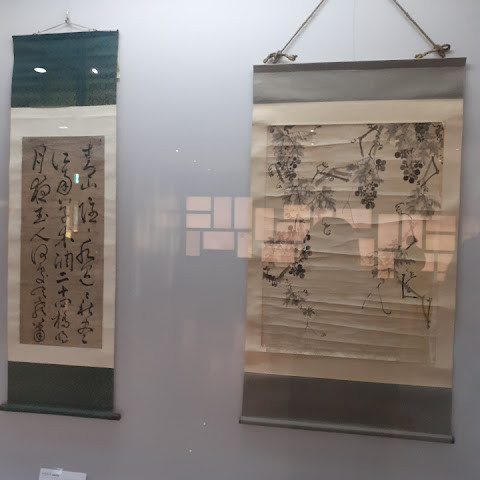 青山隱〻水迢〻秋盡
江南草木凋二十四橋明
月夜玉人何處教吹簫